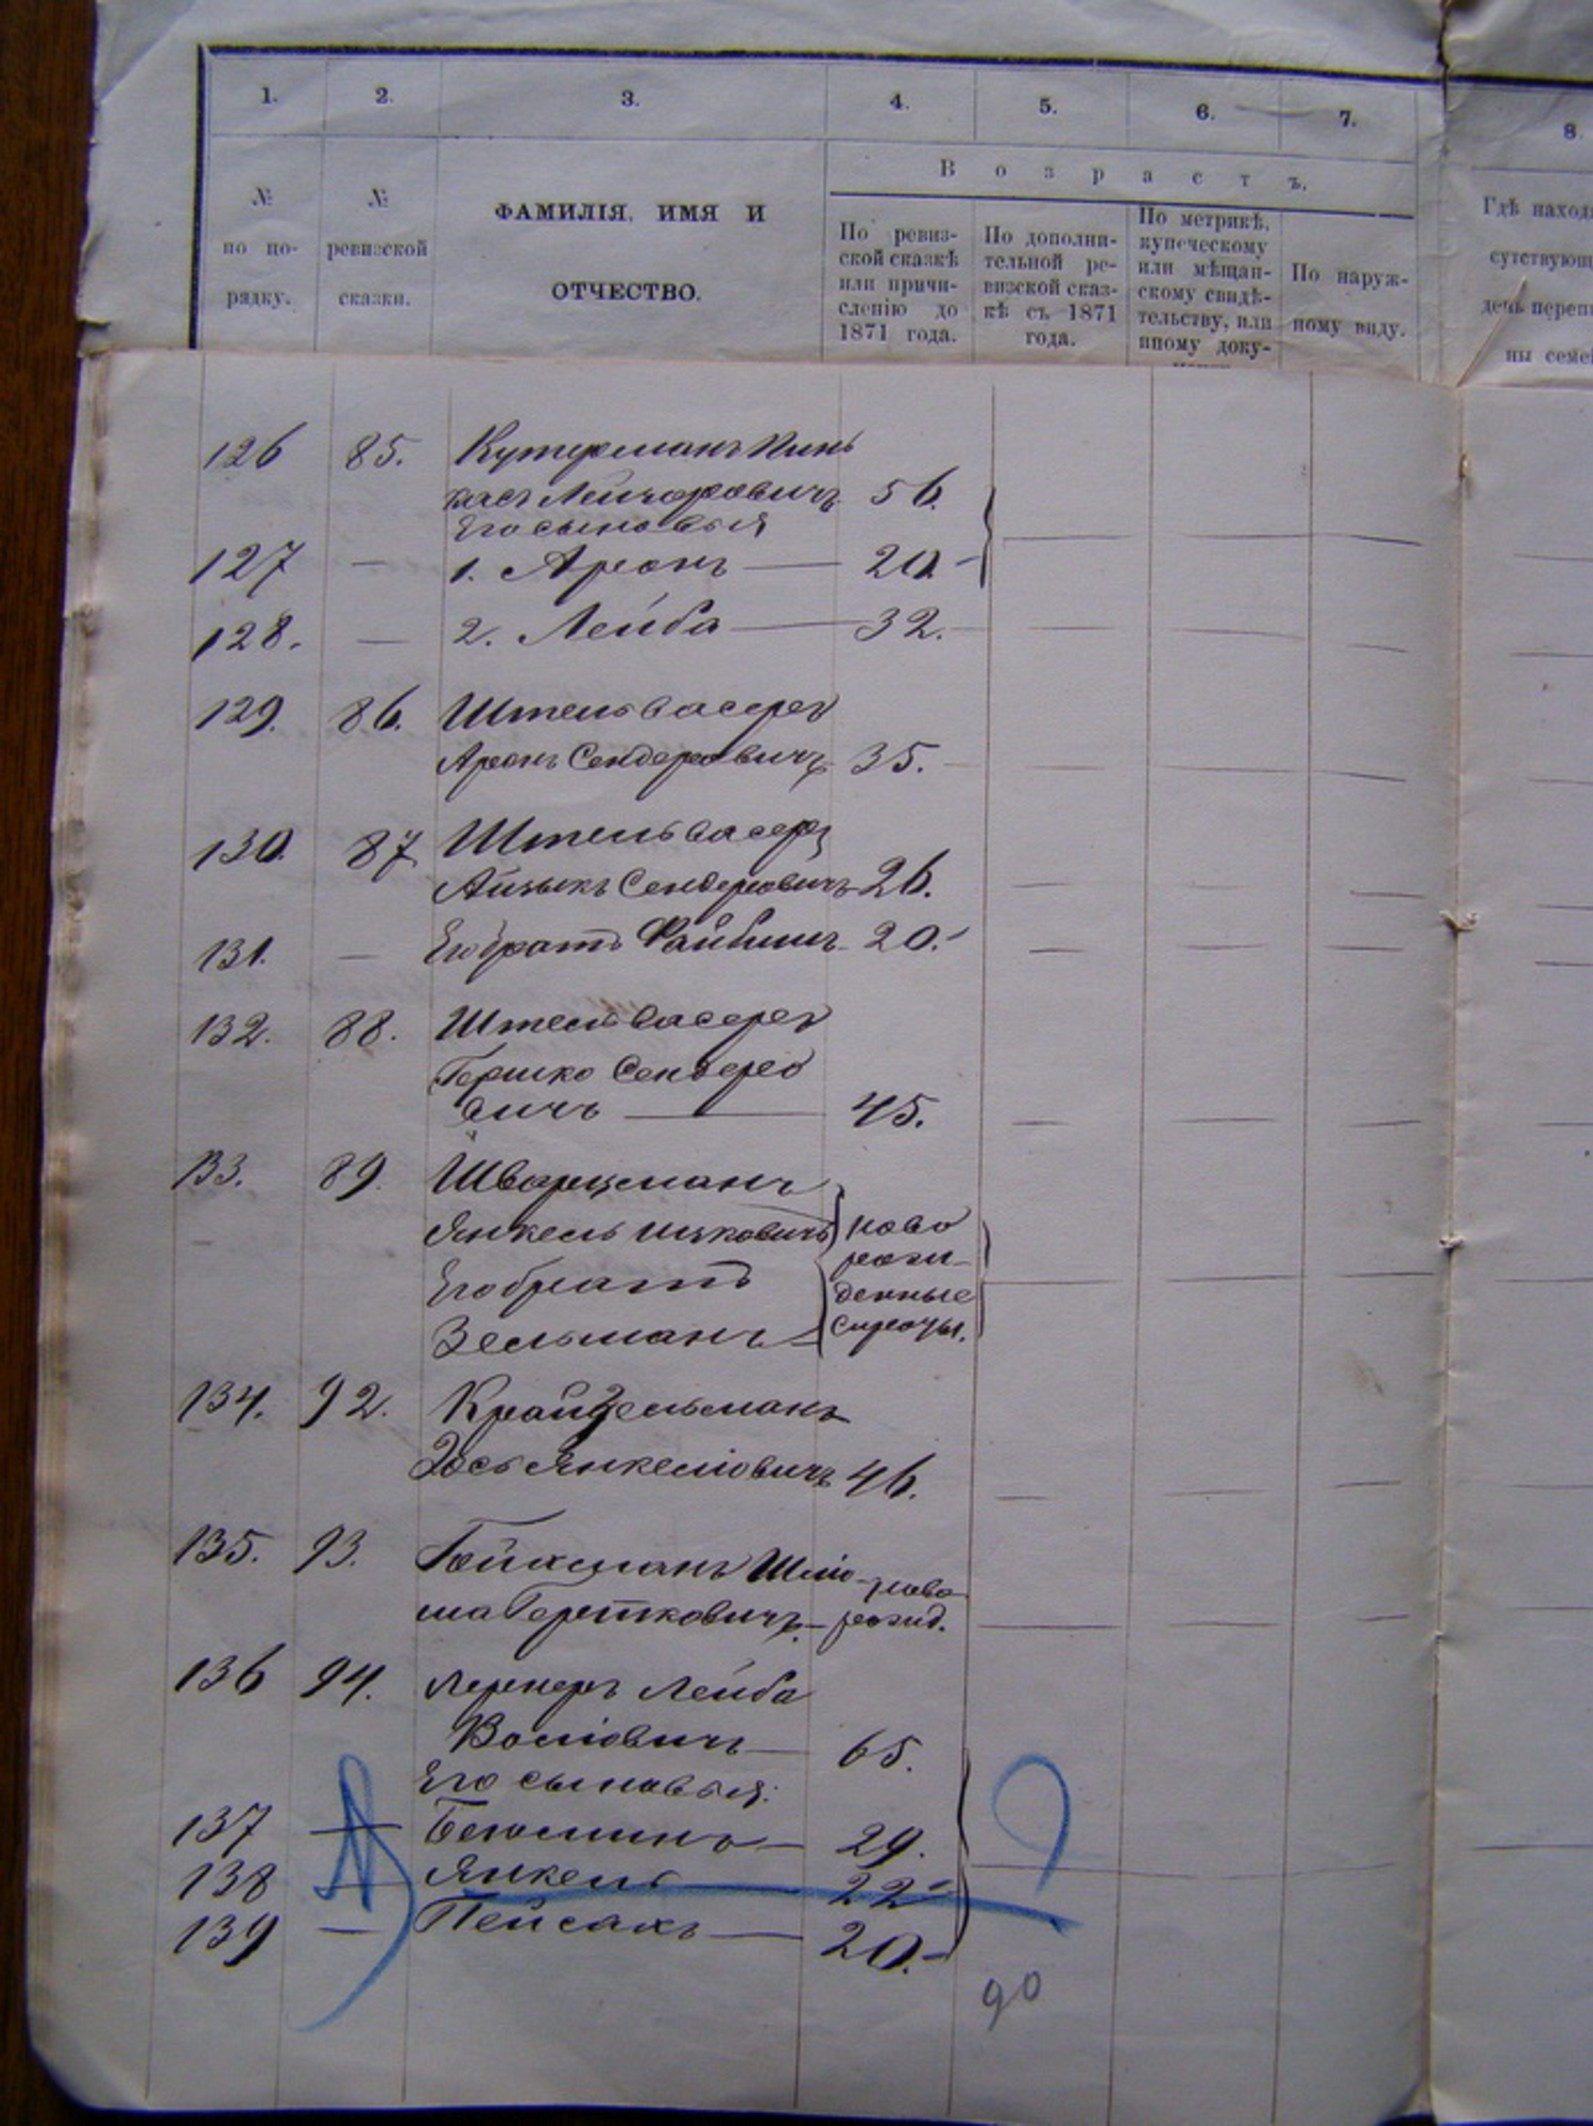 1. 2. 3. 4. 5. 6. 7. 8.
В о з р а с т ъ.
№ по по-рядку.
№ ревизской сказки.
ФАМИЛІЯ, ИМЯ И
ОТЧЕСТВО.
По ревиз-
ской сказкѣ
или причи-
сленію до
1871 года.
По дополни-
тельной ре-
визской сказ-
кѣ съ 1871
года.
По метрикѣ,
купеческому
или мѣщан-
скому свидѣ-
тельству, или
иному доку-
По наруж-
ному виду.
Гдѣ наход
сутствующ
день переп
ны семе
126 85. Кутерманъ Пинь
касъ 56.
Его сыновья
127 — 1. Аронъ — 20
128. — 2. Лейба — 32.
129. 86. Штельвасеръ
Аронъ Сендеровичъ 35.
130. 87 Штельвасеръ
Айзыкъ Сендеровичъ 26.
131. — Его братъ Файбишъ 20.
132. 88. Штельвасеръ
Гершко Сендеро
вичъ — 45.
133. 89. Шварцманъ
Янкель Ицковичъ ново
Его братъ рожи-
денные
Зельманъ сироты.
134. 92. Крайзельманъ
Янкеліовичъ 46.
135. 93. Гойхманъ Шліо- ново
ма Гершковичъ — рожид.
136 94. Лернеръ Лейба
Воліовичъ — 65.
Его сыновья:
137 — Беюминъ — 29.
138 — Янкель — 22
139 — Пейсахъ — 20.
90